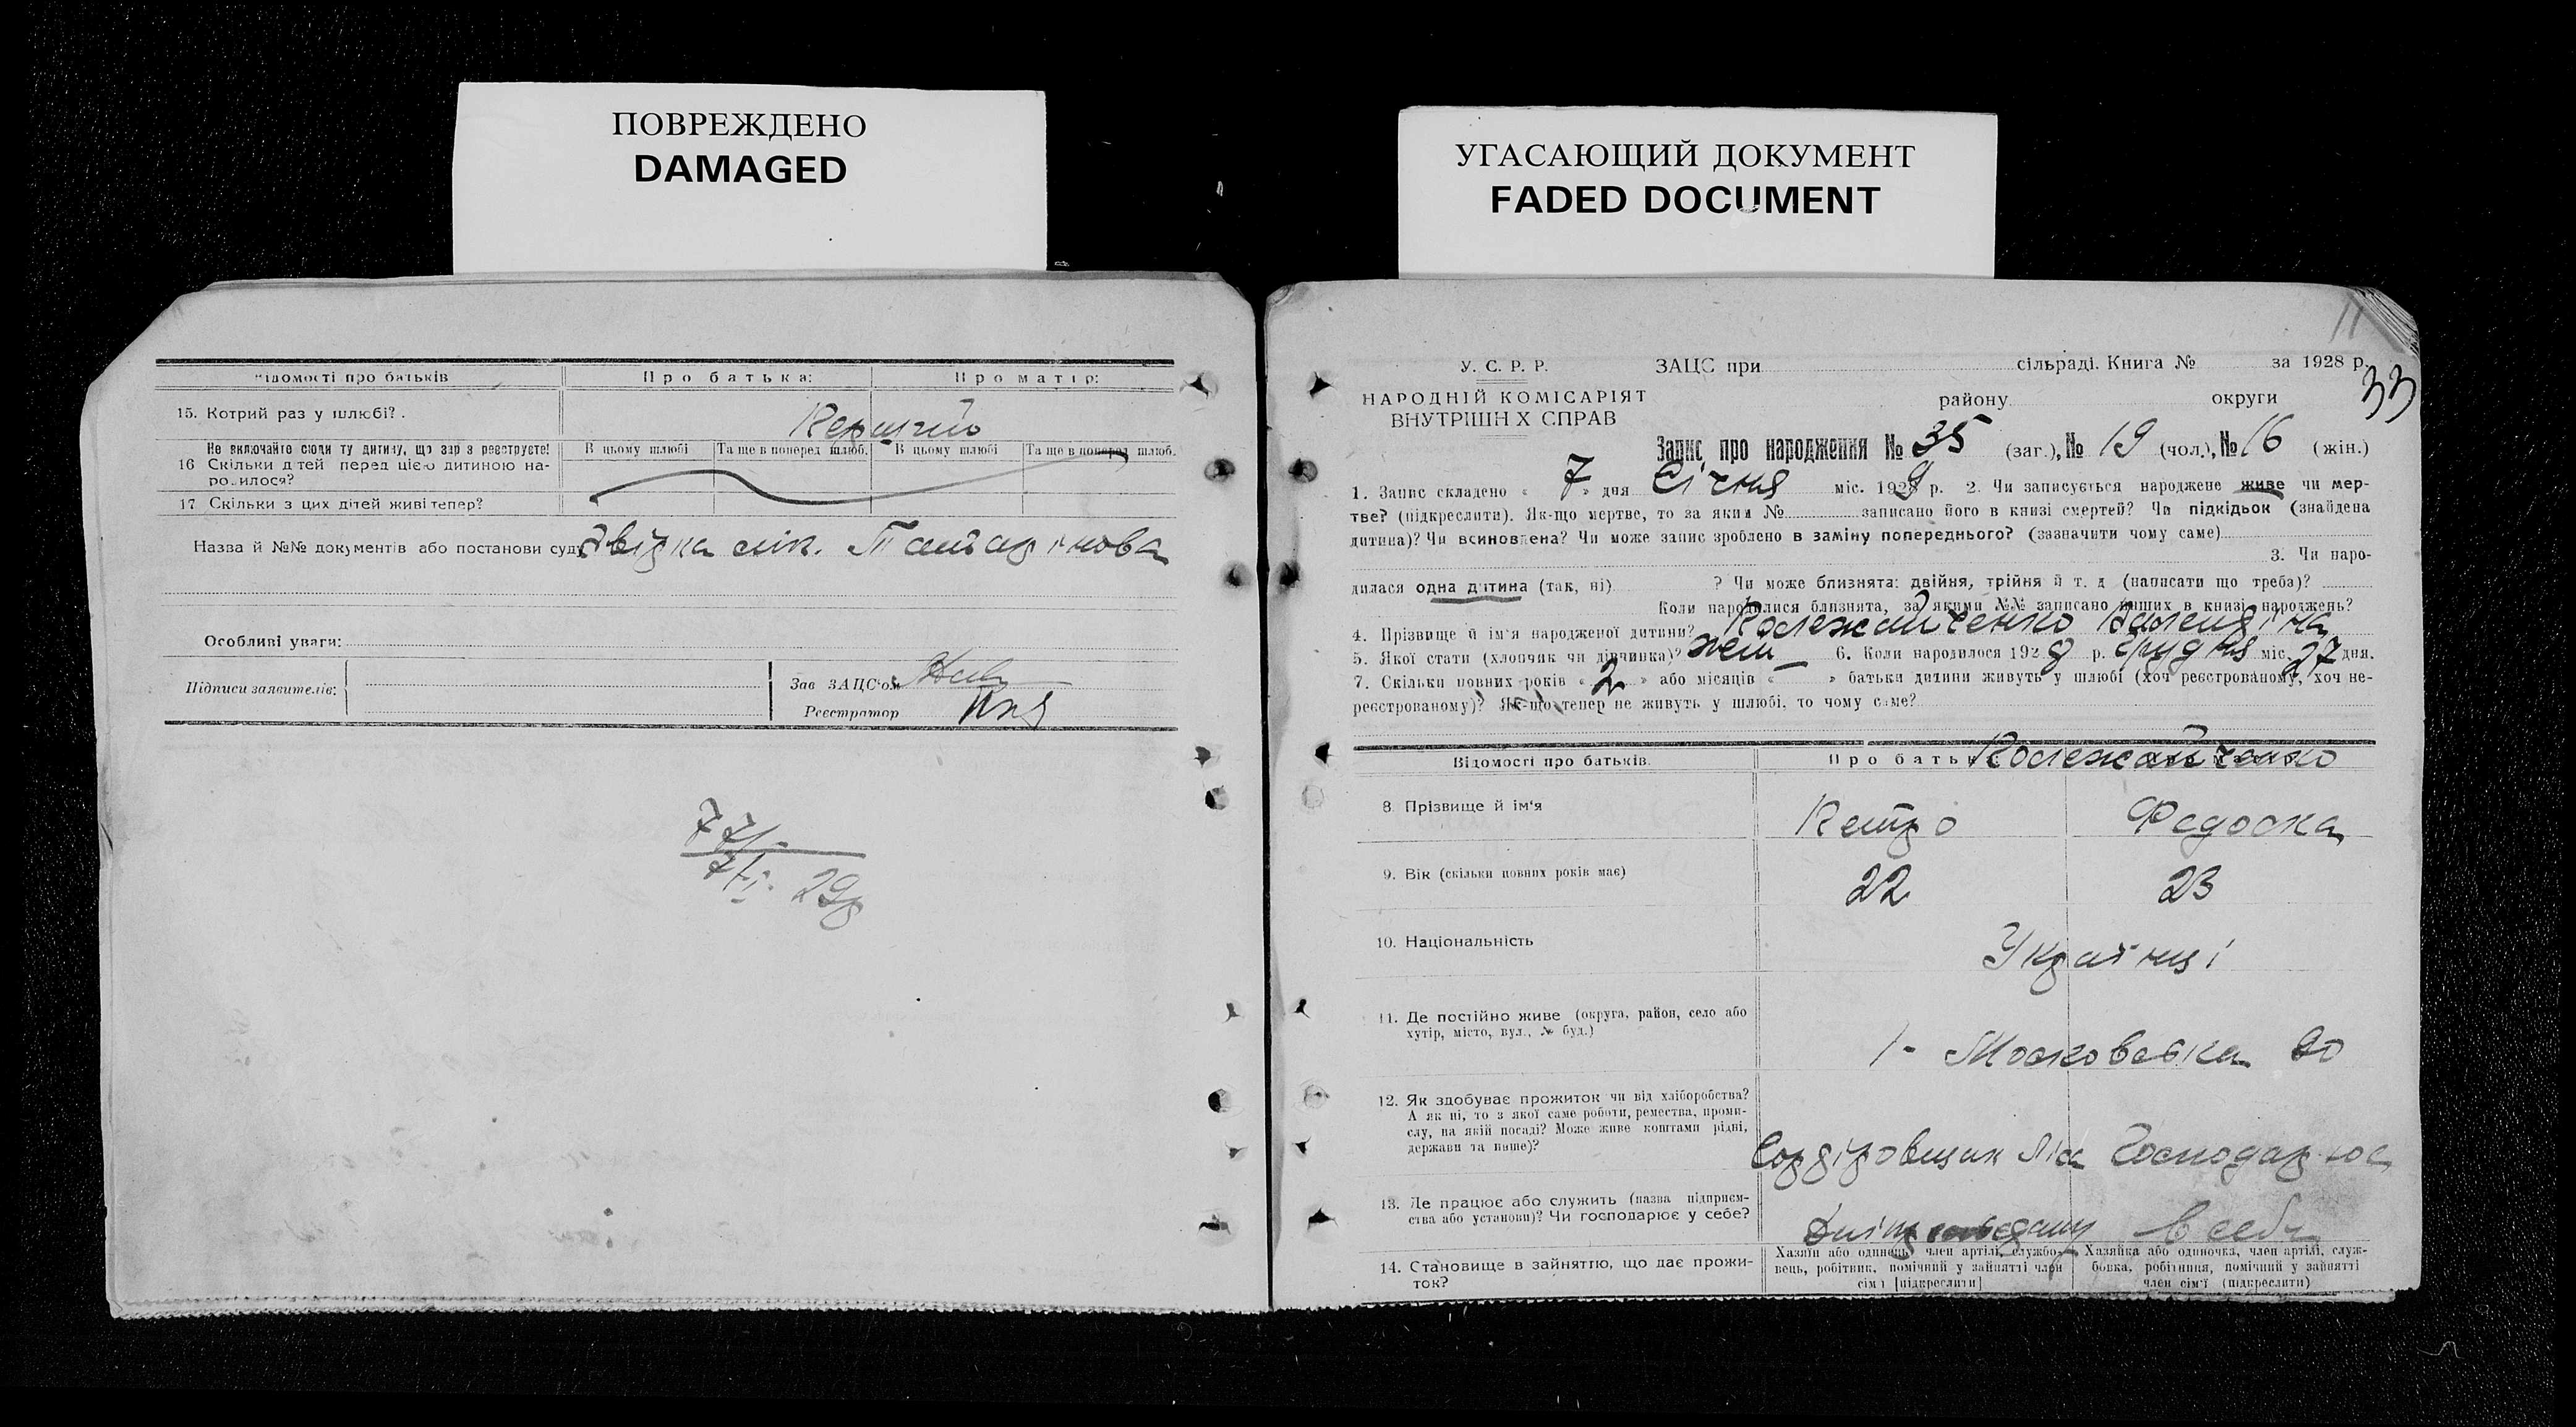 ПОВРЕЖДЕНО
DAMAGED
УГАСАЮЩИЙ ДОКУМЕНТ
FADED DOCUMENT
Відомості про батьків
Про батька:
Про матір:
15. Котрий раз у шлюбі?
Первий
Не включайте сюди ту дитину, що зараз реєструєте!
16 Скільки дітей перед цією дитиною на-
родилося?
В цьому шлюбі
Та ще в поперед шлюб.
В цьому шлюбі
Та ще в поперед шлюб.
17 Скільки з цих дітей живі тепер?
Назва й №№ документів або постанови суду
Звідка лік.
Особливі уваги:
Підписи заявителів:
Зав ЗАЦС'ом
Реєстратор
77/-
7/I- 29р
11
33
У. С. Р. Р.
НАРОДНІЙ КОМІСАРІЯТ
ВНУТРІШН Х СПРАВ
ЗАЦС при сільраді. Книга № за 1928 р.
району округи
Запис про народження № 35 (заг.), № 19 (чол.), № 16 (жін.)
1. Запис складено « 7 » дня Січня міс. 1929 р. 2. Чи записується народжене живе чи мер-
тве? (підкреслити). Як-що мертве, то за яким № записано його в книзі смертей? Чи підкідьок (знайдена
дитина)? Чи всиновлена? Чи може запис зроблено в заміну попереднього? (зазначити чому саме)
3. Чи наро-
дилася одна дитина (так, ні) ? Чи може близнята: двійня, трійня й т. д (написати що треба)?
Коли народилися близнята, за якими №№ записано инших в книзі народжень?
4. Прізвище й ім'я народженої дитини? Полежайченко Валендіна
5. Якої стати (хлопчик чи дівчинка)? жен 6. Коли народилося 1928 р. грудня міс. 27 дня.
7. Скільки повних років « 2 » або місяців « » батьки дитини живуть у шлюбі (хоч реєстрованому, хоч не-
реєстрованому)? Як-що тепер не живуть у шлюбі, то чому саме?
Відомості про батьків.
Про батька
Полежайченко
8. Прізвище й ім'я
Петро
Федоска
9. Вік (скільки повних років має)
22
23
10. Національність
Українці
11. Де постійно живе (округа, район, село або
хутір, місто, вул., № буд.)
1- Московська 80
12. Як здобуває прожиток чи від хліборобства?
А як ні, то з якої саме роботи, ремества, проми-
слу, на якій посаді? Може живе коштами рідні,
держави та инше)?
Сордіровщик ліса
Господарюе
13. Де працює або служить (назва підприєм-
ства або установи)? Чи господарює у себе?
в себе
14. Становище в зайняттю, що дає прожи-
ток?
Хазяїн або одинець, член артілі, службо-
вець, робітник, помічний у зайнятті член
сім'ї [підкреслити]
Хазяйка або одиночка, член артілі, служ-
бовка, робітниця, помічний у зайнятті
член сім'ї (підкреслити)